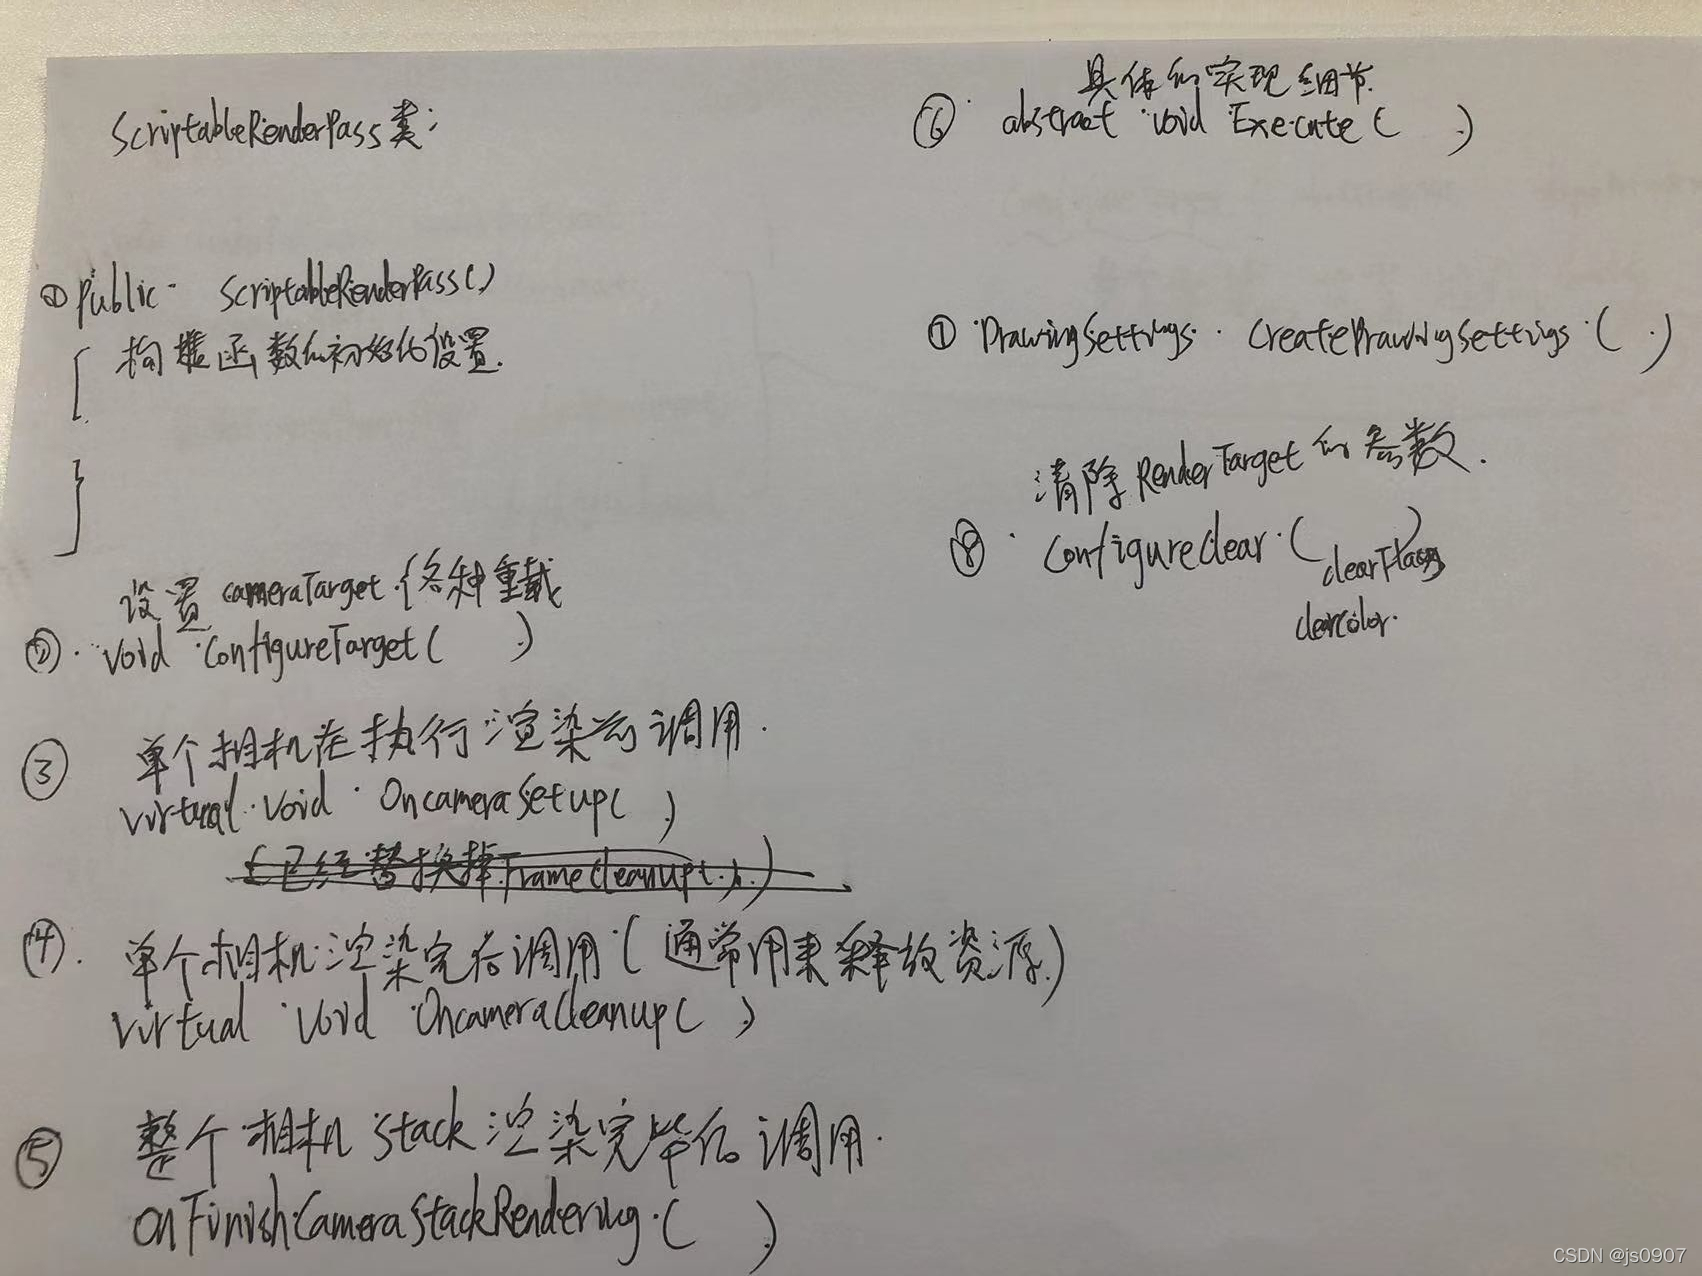 ScriptableRenderPass类:
① Public ScriptableRenderPass()
构造函数的初始化设置.
{
}
设置 cameraTarget.(各种重载
② void ConfigureTarget( )
③ 单个相机在执行渲染前调用.
virtual void OncameraSetup( )
(已经替换掉FrameCleanup().)
④ 单个相机渲染完后调用(通常用来释放资源.)
virtual void OncameraCleanup( )
⑤ 整个相机 Stack 渲染完毕后调用.
OnFinishCameraStackRendering.( )
具体的实现细节.
⑥ abstract void Execute( )
⑦ DrawingSettings CreateDrawingSettings( )
清除 RenderTarget 的参数.
⑧ ConfigureClear.( )
clearFlags
clearcolor.
CSDN @js0907